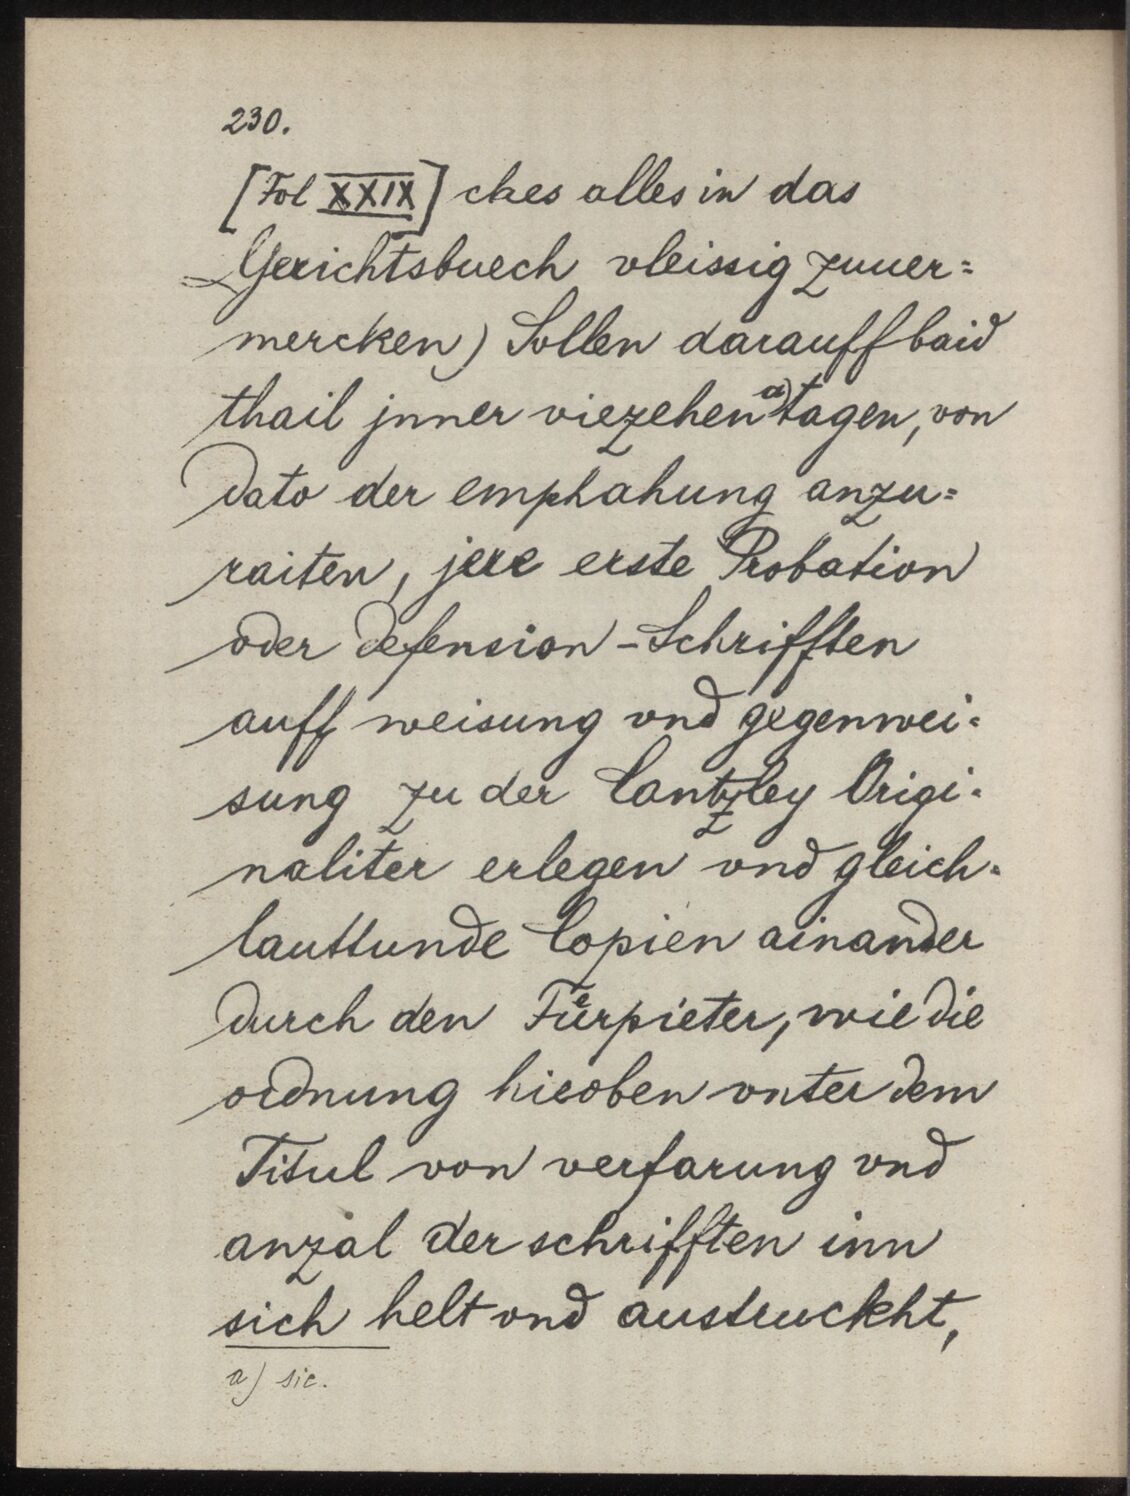 230.
[Fol XXIX] ches alles in das
Gerichtsbuech vleissig zuuer=
mercken) Sollen darauff baid
thail jnner viezehen a) tagen, von
dato der emphahung anzu=
raiten, jere erste Probation
oder defension-Schrifften
auff weisung vnd gegenwei=
sung zu der Cantzley Origi=
naliter erlegen vnd gleich=
lauttunde Copien ainander
durch den Fuͤrpieter, wie die
ordnung hieoben vnter dem
Titul von verfarung vnd
anzal der schrifften inn
sich helt vnd austruckht,
a) sic.